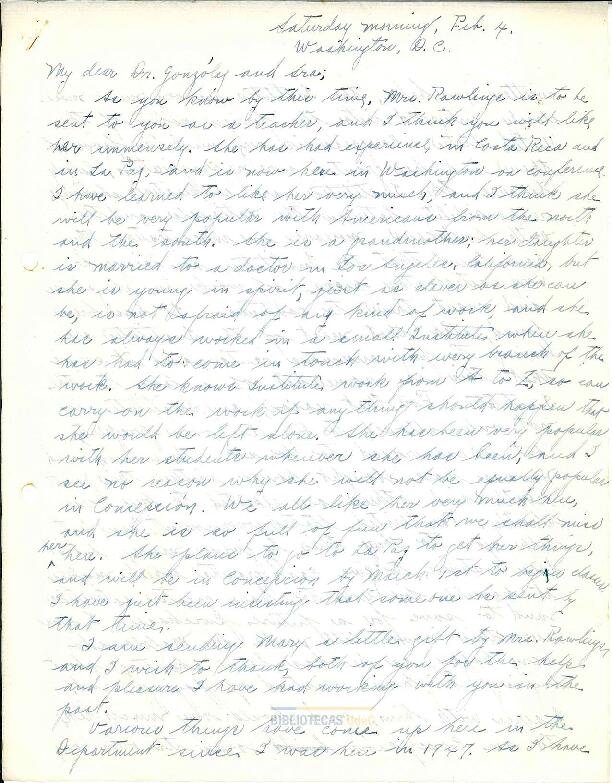 Saturday morning, Feb. 4.
Washington, D.C.
My dear Dr. González and Sra;
As you know by this time, Mrs. Rawlings is to be
sent to you as a teacher, and I think you will like
her immensely. She has had experience in Costa Rica and
in La Paz, and is now here in Washington on conference.
I have learned to like her very much, and I think she
will be very popular with Americans from the north
and the south. She is a grandmother; her daughter
is married to a doctor in Los Angeles, California, but
she is young in spirit, just as clever as she can
be, is not afraid of any kind of work, and she
has always worked in a small Institute where she
has had to come in touch with every branch of the
work. She knows Institute work from A to Z, so can
carry on the work if anything should happen that
she would be left alone. She has been very popular
with her students wherever she has been, and I
see no reason why she will not be equally popular
in Concepción. We all like her very much
and she is so full of fun that we shall miss
her here. She plans to go to La Paz to get her things,
and will be in Concepcion by March 1st to begin classes
I have just been insisting that some one be sent by
that time.
I am sending Mary a little gift by Mrs. Rawlings,
and I wish to thank both of you for the help
and pleasure I have had working with you in the
past.
Various things have come up here in the
Department since I was here in 1947. As I have
BIBLIOTECAS UdeC